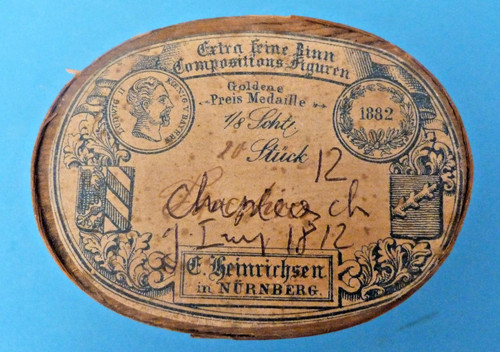 Extra feine Zinn
Compositions-Figuren
Goldene
Preis Medaille
Ludwig II KOENIG V. BAYERN
1882
1/8 Scht.
20 Stück 12
ch
1812
E. Heinrichsen
in NÜRNBERG.